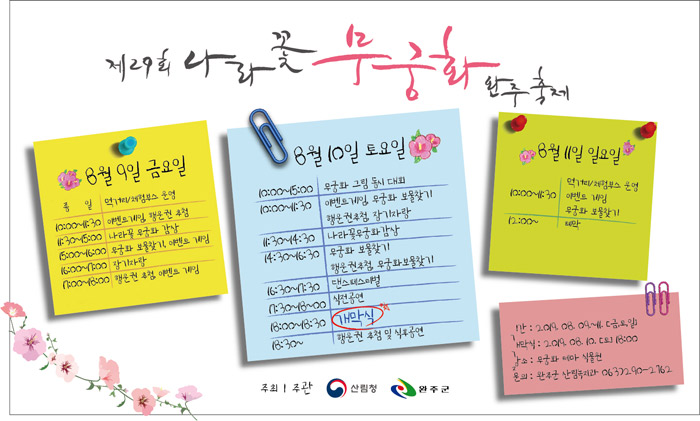 제29회 나라꽃 무궁화 완주 축제
8월 9일 금요일
종 일 먹거리/체험부스 운영
10:00~11:30 이벤트게임, 행운권 추첨
11:30~15:00 나라꽃 무궁화 감상
15:00~16:00 무궁화 보물찾기, 이벤트 게임
16:00~17:00 장기자랑
17:00~18:00 행운권 추첨, 이벤트 게임
8월 10일 토요일
10:00~15:00 무궁화 그림 동시 대회
10:00~11:30 이벤트게임, 무궁화 보물찾기
행운권추첨, 장기자랑
11:30~14:30 나라꽃무궁화감상
14:30~16:30 무궁화 보물찾기
행운권추첨, 무궁화보물찾기
16:30~17:30 댄스페스티벌
17:30~18:00 식전공연
18:00~18:30 개막식
18:30~ 행운권 추첨 및 식후공연
8월 11일 일요일
먹거리/체험부스 운영
10:00~11:30 이벤트 게임
무궁화 보물찾기
12:00~ 폐막
기간 : 2019. 08. 09~11. (금요일)
개막식 : 2019. 08. 10. (토) 18:00
장소 : 무궁화 테마 식물원
문의 : 완주군 산림축지과 063)290-2762
주최 | 주관 산림청 완주군